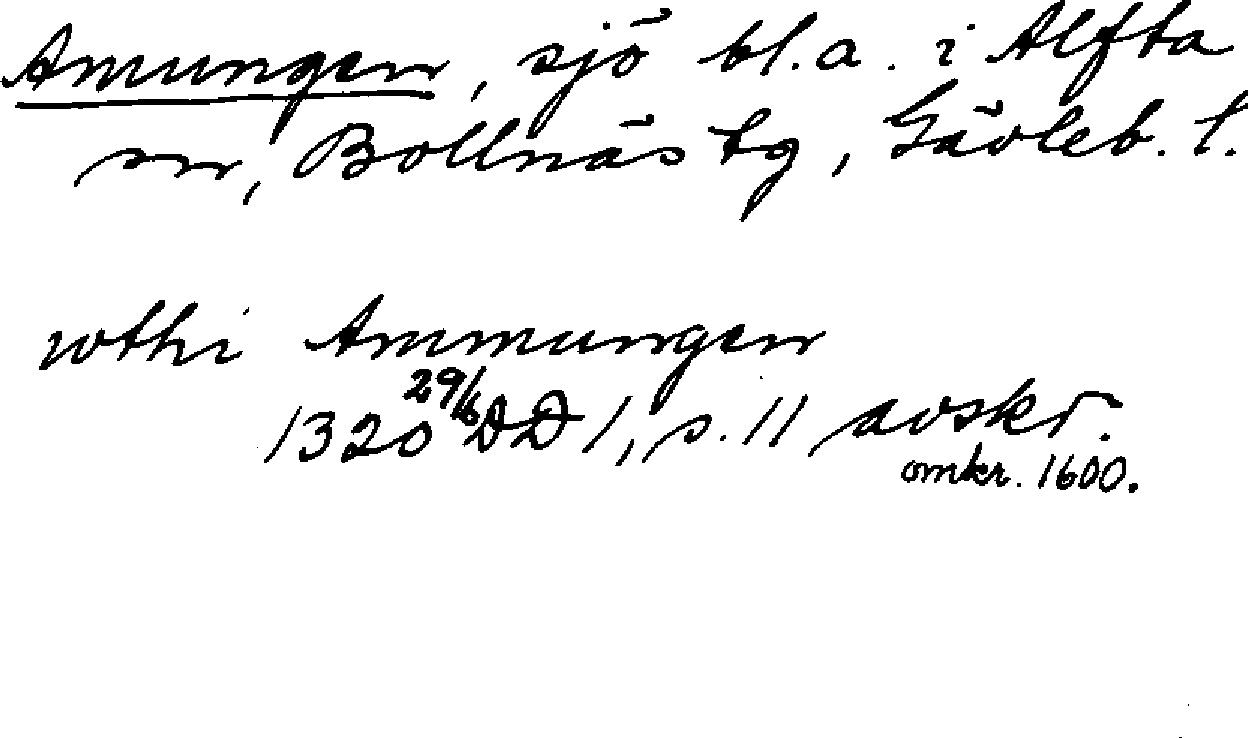 Amungen, sjö bl.a. i Alfta
sn, Bollnäs tg, Gävleb. l.
wthi Ammungen
1320 29/6 DD 1, s. 11 avskr.
omkr. 1600.